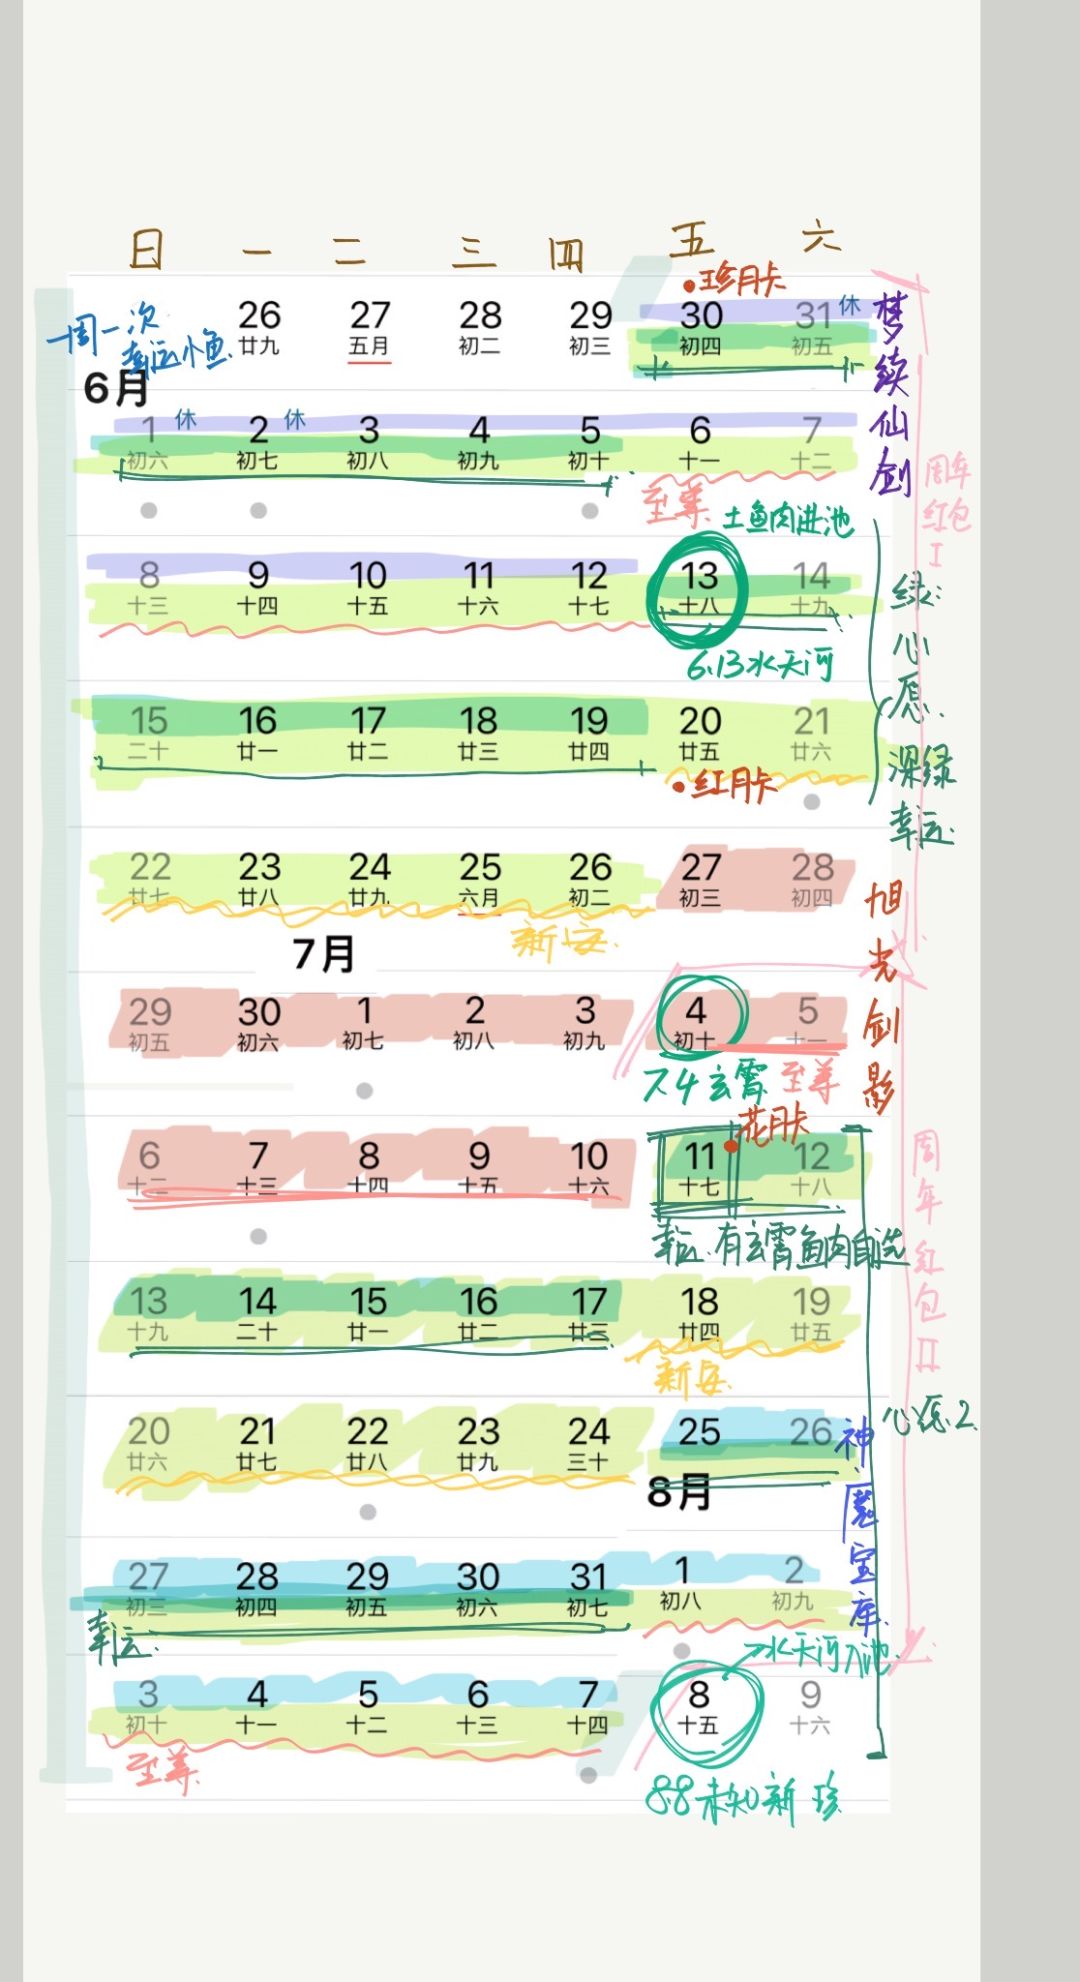 日 一 二 三 四 五 六
珍月卡
26 27 28 29 30 31 休
廿九 五月 初二 初三 初四 初五
一周一次
幸运小鱼
6月
1 休 2 休 3 4 5 6 7
初六 初七 初八 初九 初十 十一 十二
至尊
土鱼肉进池
8 9 10 11 12 13 14
十三 十四 十五 十六 十七 十八 十九
6.13水天河
15 16 17 18 19 20 21
二十 廿一 廿二 廿三 廿四 廿五 廿六
红月卡
22 23 24 25 26 27 28
廿七 廿八 廿九 六月 初二 初三 初四
新安
7月
29 30 1 2 3 4 5
初五 初六 初七 初八 初九 初十 十一
7.4玄霄 至尊
花月卡
6 7 8 9 10 11 12
十二 十三 十四 十五 十六 十七 十八
幸运.有玄霄鱼肉自选
13 14 15 16 17 18 19
十九 二十 廿一 廿二 廿三 廿四 廿五
新安
20 21 22 23 24 25 26
廿六 廿七 廿八 廿九 三十
8月
27 28 29 30 31 1 2
初三 初四 初五 初六 初七 初八 初九
幸运
水天河入池
3 4 5 6 7 8 9
初十 十一 十二 十三 十四 十五 十六
至尊
8.8未知新珍
梦续仙剑
周年红包I
绿:心愿.
深绿幸运.
旭光剑影
周年红包II
心愿.2
神魔宝库